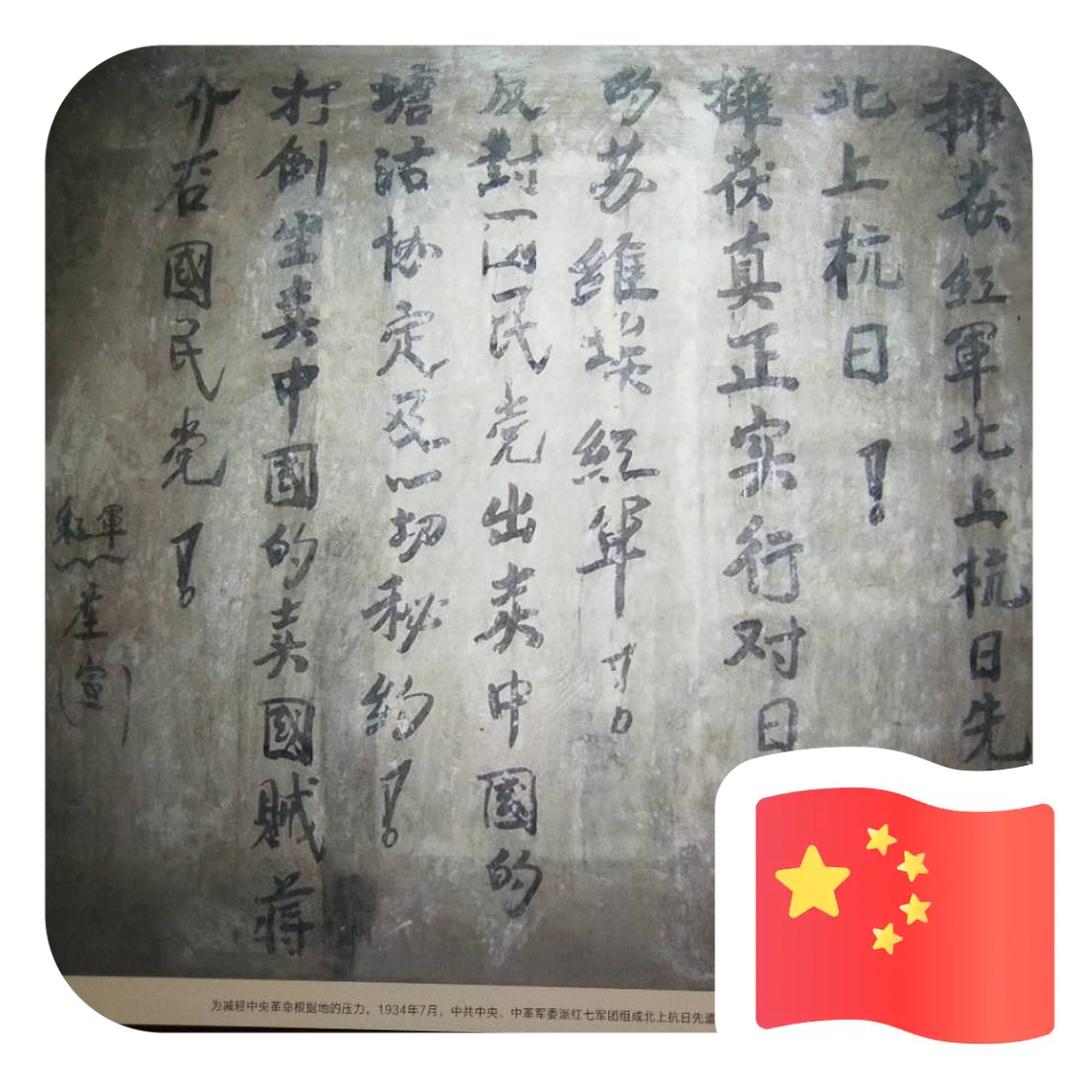 擁茯紅軍北上杭日先
北上杭日！
擁茯真正实行对日
的苏維埃紅軍！
反對国民党出卖中國的
塘沽协定及一切秘约！
打倒出卖中國的卖國賊蒋
介石國民党！
紅軍 (宣)
为减轻中央革命根据地的压力，1934年7月，中共中央、中革军委派红七军团组成北上抗日先遣